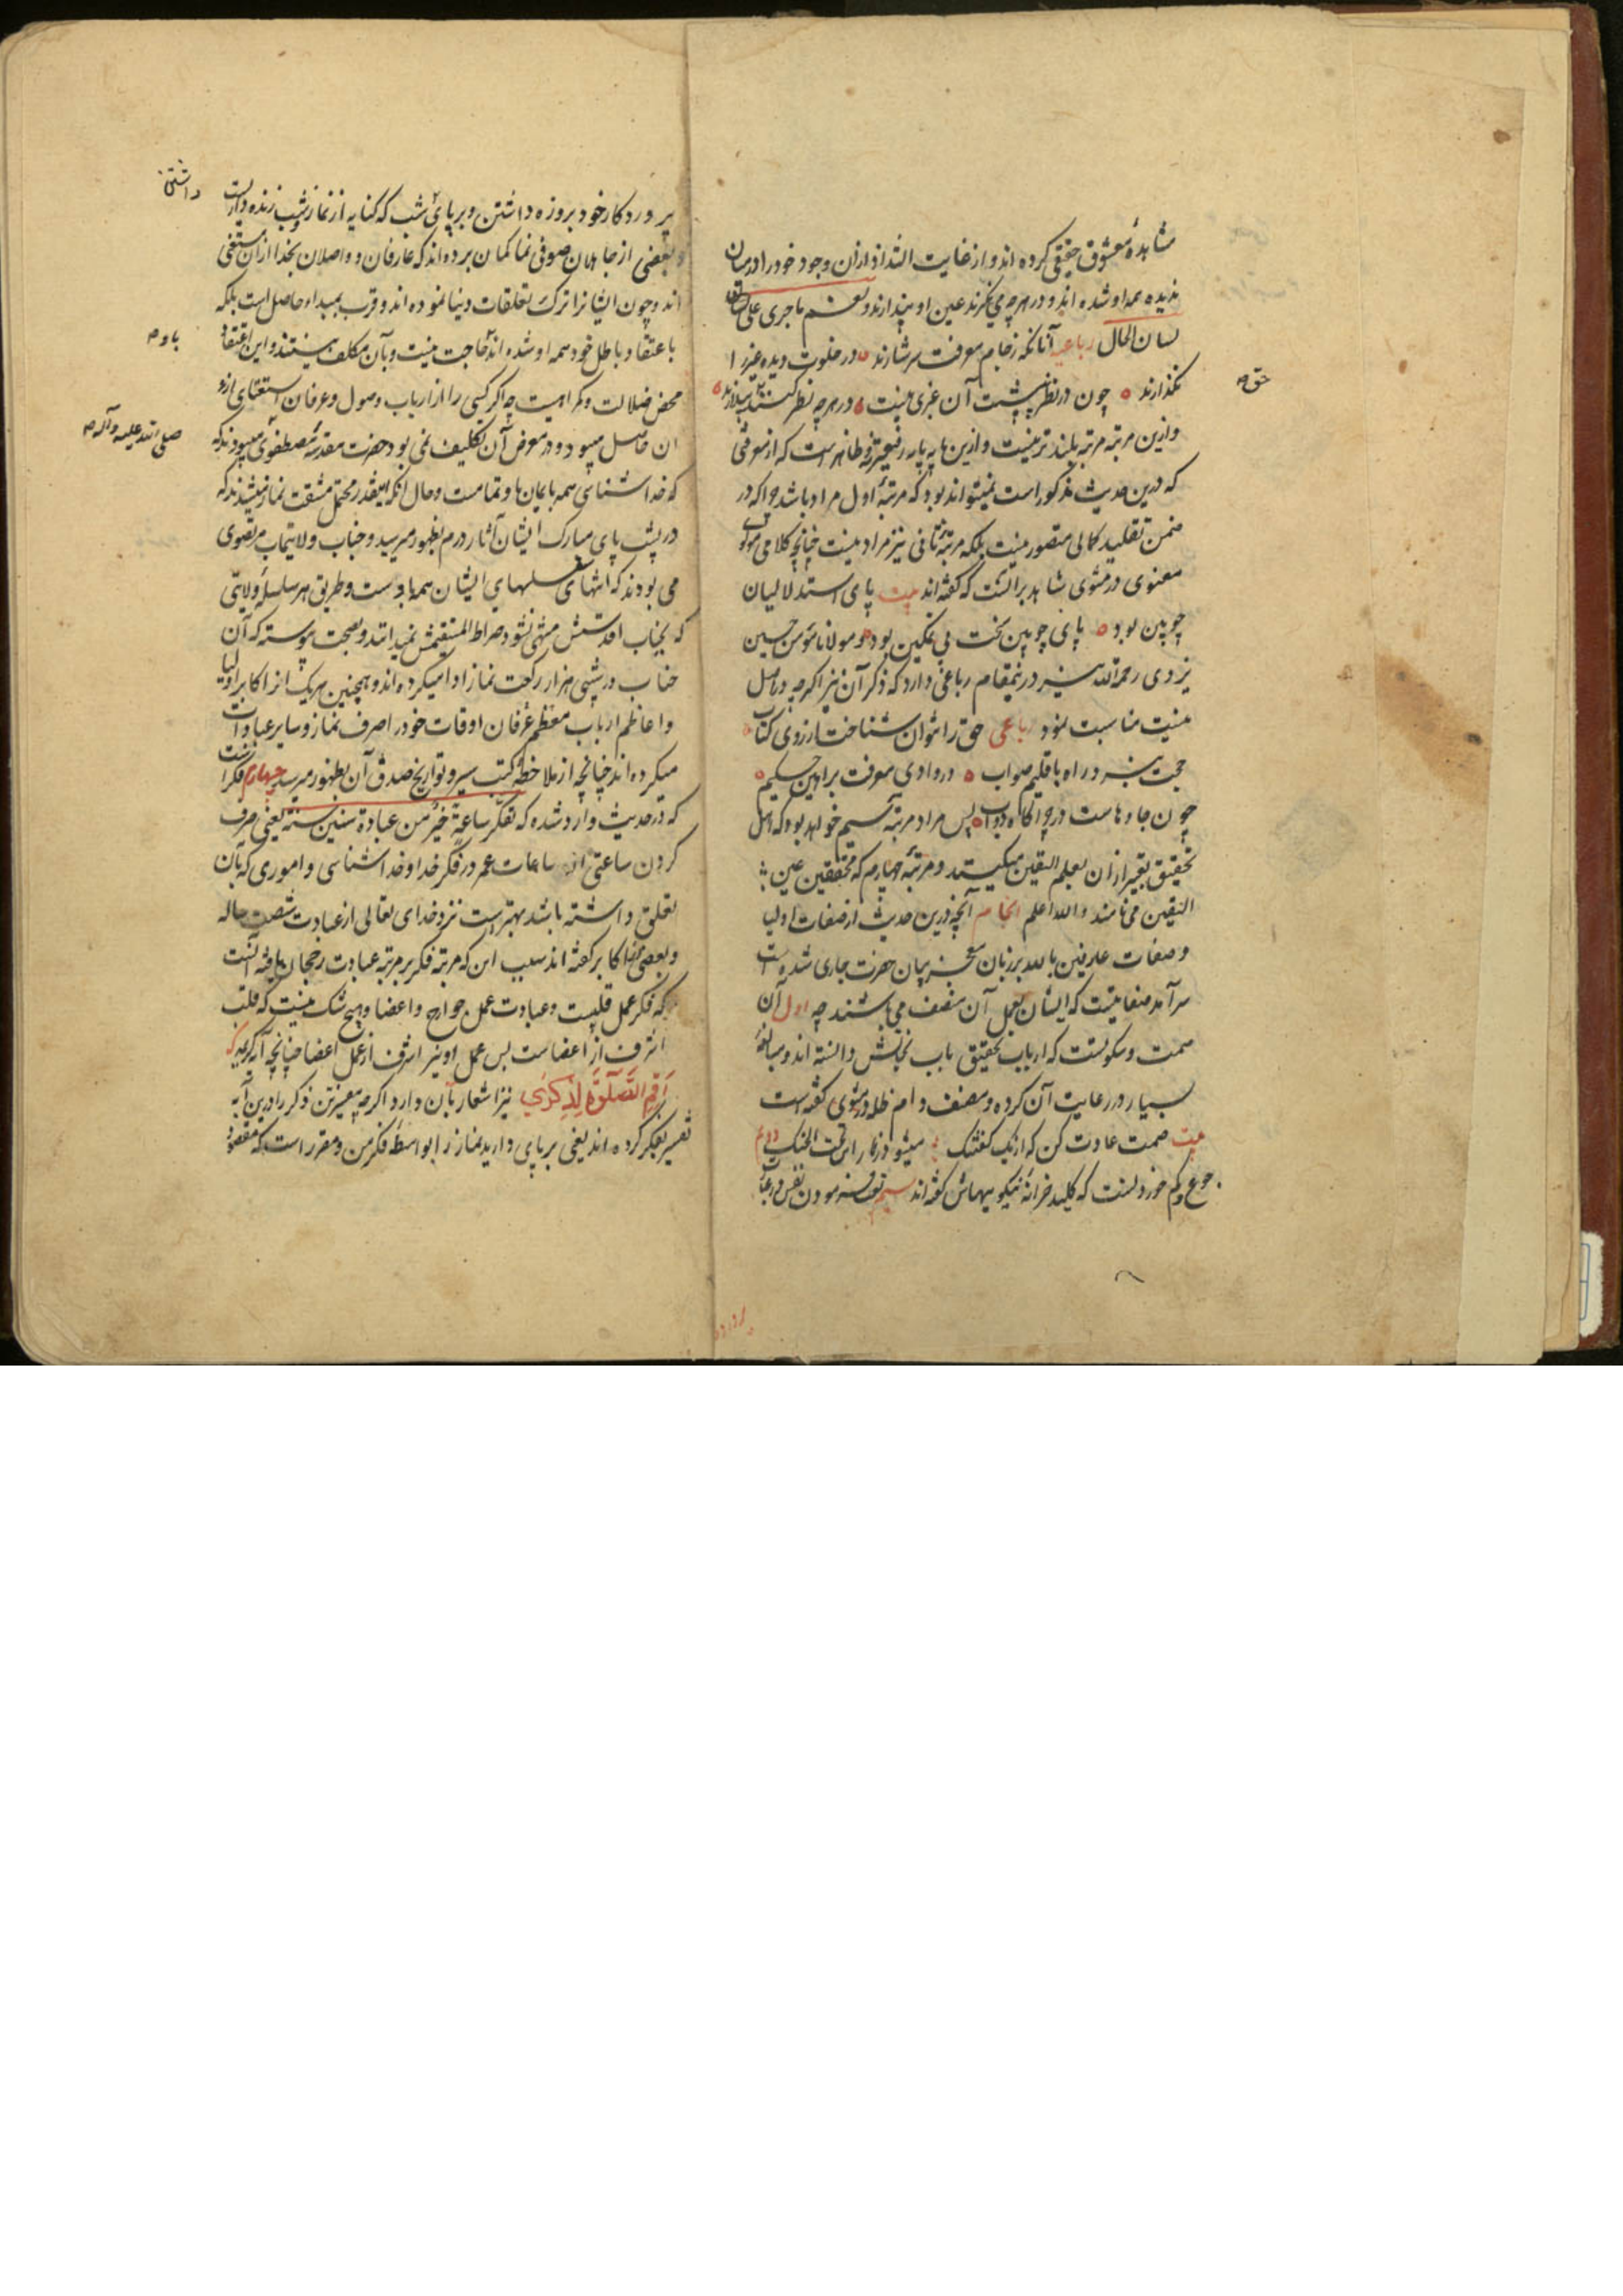 مشاهدهٔ معشوق حقیقی کرده اند و از غایت التذاذ ازان وجود خود را در میان
ندیده همه او شده اند و در هر چه می نکرند عین او پندارند و نعم ما جری علی
لسان الحال رباعیه آنانکه ز جام معرفت سرشارند در خلوت دیده غیر را
نکذارند چون در نظر آن غیری نیست در هر چه نظر کنند
حق
وازین مرتبه مرتبهٔ بلندتر نیست وازین پایه پایه رفیعتر نه و ظاهر است که از معرفتی
که درین حدیث مذکور است نمیتواند بود که مرتبهٔ اول مراد باشد چرا که در
ضمن تقلید کمالی متصور نیست بلکه مرتبهٔ ثانی نیز مراد نیست چنانچه کلام مولوی
معنوی در مثنوی شاهد برآنست که کفته اند بیت پای استدلالیان
چوبین بود پای چوبین سخت بی تمکین بود و مولانا مؤمن حسین
یزدی رحمه الله نیز درینمقام رباعی دارد که ذکر آن نیز اکرچه در اصل
نیست مناسبت نمود رباعی حق را نتوان شناخت از روی کتاب
حجت نبرد راه باقلیم صواب در وادی معرفت براهین حکیم
چون جادهاست در چراکاه دواب پس مراد مرتبهٔ سیم خواهد بود که اهل
تحقیق تعبیر ازان بعلم الیقین میکنند و مرتبهٔ چهارم که محققین عین
الیقین می نامند والله اعلم انجام آنچه درین حدیث از صفات اولیا
و صفات عارفین بالله بر زبان معجز بیان حضرت جاری شده است
سرآمد صفاتیست که ایشان بجمل آن متصف می باشند چه اول آن
صمت و سکوتست که ارباب تحقیق باب نجاتش دانسته اند و مبالغهٔ
بسیار در رعایت آن کرده و مصنف دام ظله در مثنوی کفته است
بیت صمت عادت کن که از یک کفتنک میشود زنار این تحت الحنک دویم
جوع و کم خوردنست که کلید خزانهٔ نیکوییهاش کفته اند سیم
پروردکار خود بروزه داشتن و برپای شب که کنایه از نماز و شب زنده داریست
داشتن
و بعضی از جاهلان صوفی نما کمان برده اند که عارفان و واصلان بخدا ازان مستغنی
اند و چون ایشانرا ترک تعلقات دنیا نموده اند و قرب بمبداء حاصل است بلکه
باعتقاد باطل خود همه او شده اند حاجت نیست و بآن مکلف نیستند و این اعتقاد
باو
محض ضلالت و کمراهیست چه اکر کسی را از ارباب وصول و عرفان استغنای ازو
ان حاصل میبود و در معرض آن تکلیف نمی بود حضرت مقدسهٔ مصطفوی میبودند که
صلی الله علیه وآله
که خداشناسی همه بایمان ها و تمامست و حال آنکه اینقدر محتمل مشقت نماز میشدند که
در پشت پای مبارک ایشان آثار ورم بظهور میرسید و جناب ولایتماب مرتضوی
می بودند که انتهای سلسلهای ایشان همه باوست و طریق هر سلسلهٔ ولایتی
که بجناب اقدسش منتهی نشود صراط المستقیمش نمیدانند و بصحت پیوسته که آن
جناب در شبی هزار رکعت نماز ادا میکرده اند و همچنین هر یک از اکابر اولیا
و اعاظم ارباب معظم عرفان اوقات خود را صرف نماز و سایر عبادات
میکرده اند چنانچه از ملاحظهٔ کتب سیر و تواریخ صدق آن بظهور میرسد چهارم فکرست
که در حدیث وارد شده که تفکر ساعة خیر من عبادة ستین سنة یعنی صرف
کردن ساعتی از ساعات عمر در فکر خدا و خداشناسی و اموری که بآن
تعلق داشته باشد بهتر است نزد خدای تعالی از عبادت شصت ساله
و بعضی از اکابر کفته اند سبب این که مرتبه فکر بر مرتبه عبادت رجحان یافته آنست
که فکر عمل قلبیست و عبادت عمل جوارح و اعضا و هیچ شک نیست که قلب
اشرف از اعضاست پس عمل او نیز اشرف از عمل اعضا چنانچه آیه کریمه
اَقِمِ الصَّلٰوةَ لِذِکْرِی نیز اشعار بآن دارد اکرچه مفسرین ذکر را درین آیه
تفسیر بفکر کرده اند یعنی برپای دارید نماز را بواسطهٔ فکر من و مقرر است که مقصود